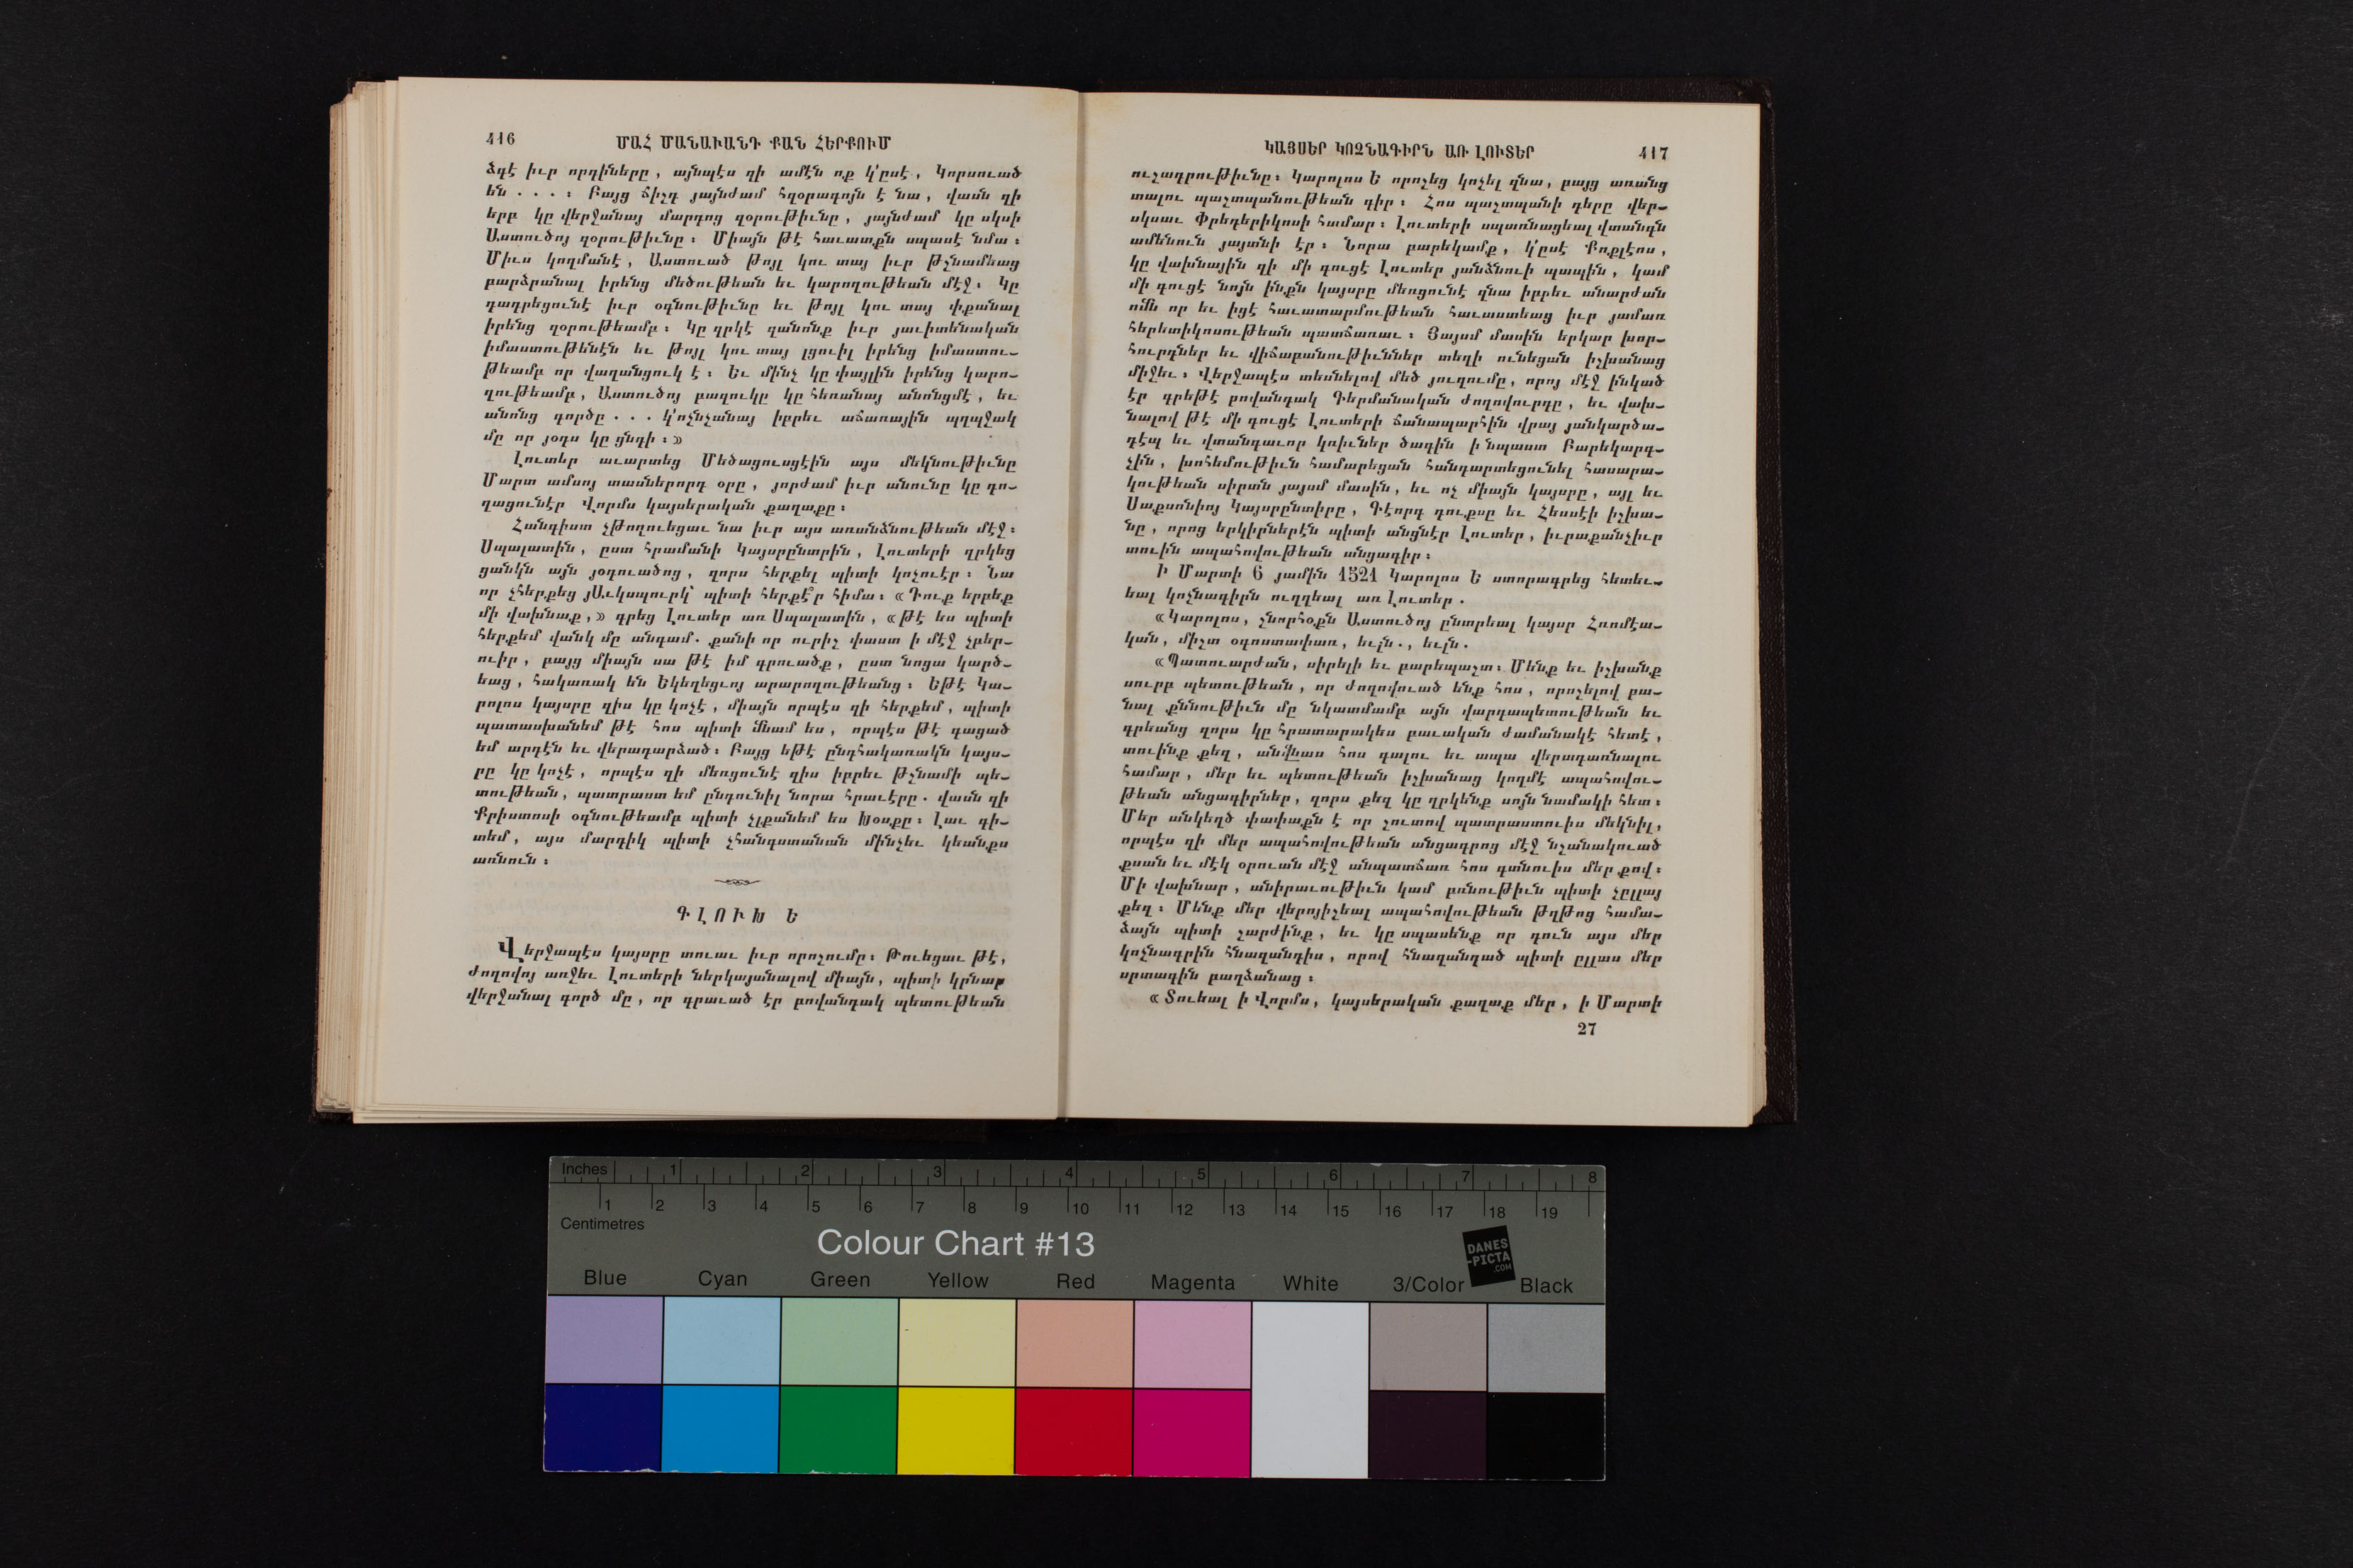 416 ՄԱՀ ՄԱՆԱՒԱՆԴ ՔԱՆ ՀԵՐՔՈՒՄ
ձզէ իւր որդիները, այնպէս զի ամէն ոք կ՚ըսէ, Կորսուած
են . . . ։ Բայց ճիշդ յայնժամ հզօրագոյն է նա, վասն զի
երբ կը վերջանայ մարդոց զօրութիւնը, յայնժամ կը սկսի
Աստուծոյ զօրութիւնը։ Միայն թէ հաւատքն սպասէ նմա։
Միւս կողմանէ, Աստուած թոյլ կու տայ իւր թշնամեաց
բարձրանալ իրենց մեծութեան եւ կարողութեան մէջ։ Կը
դադրեցունէ իւր օգնութիւնը եւ թոյլ կու տայ փքանալ
իրենց զօրութեամբ։ Կը զրկէ զանոնք իւր յաւիտենական
իմաստութենէն եւ թոյլ կու տայ լցուիլ իրենց իմաստու-
թեամբ որ վաղանցուկ է։ Եւ մինչ կը փայլին իրենց կարո-
ղութեամբ, Աստուծոյ բազուկը կը հեռանայ անոնցմէ, եւ
անոնց գործը . . . կ՚ոչնչանայ իբրեւ աճառային պղպջակ
մը որ յօդս կը ցնդի։»
Լուտեր աւարտեց Մեծացուսցէին այս մեկնութիւնը
Մարտ ամսոյ տասներորդ օրը, յորժամ իւր անունը կը դո-
ղացունէր Վորմս կայսերական քաղաքը։
Հանգիստ չթողուեցաւ նա իւր այս առանձնութեան մէջ։
Սպալատին, ըստ հրամանի Կայսրընտրին, Լուտերի ղրկեց
ցանկն այն յօդուածոց, զորս հերքել պիտի կոչուէր։ Նա
որ չհերքեց յԱւկսպուրկ՝ պիտի հերքէ՞ր հիմա։ «Դուք երբեք
մի վախնաք,» գրեց Լուտեր առ Սպալատին, «թէ ես պիտի
հերքեմ վանկ մը անգամ. քանի որ ուրիշ փաստ ի մէջ չբեր-
ուիր, բայց միայն սա թէ իմ գրուածք, ըստ նոցա կարծ-
եաց, հակառակ են Եկեղեցւոյ արարողութեանց։ Եթէ Կա-
րոլոս կայսրը զիս կը կոչէ, միայն որպէս զի հերքեմ, պիտի
պատասխանեմ թէ հոս պիտի մնամ ես, որպէս թէ գացած
եմ արդէն եւ վերադարձած։ Բայց եթէ ընդհակառակն կայս-
րը կը կոչէ, որպէս զի մեռցունէ զիս իբրեւ թշնամի պե-
տութեան, պատրաստ եմ ընդունիլ նորա հրաւէրը. վասն զի
Քրիստոսի օգնութեամբ պիտի չլքանեմ ես Խօսքը։ Լաւ գի-
տեմ, այս մարդիկ պիտի չհանգստանան մինչեւ կեանքս
առնուն։
ԳԼՈՒԽ Ե
Վերջապէս կայսրը տուաւ իւր որոշումը։ Թուեցաւ թէ,
ժողովոյ առջեւ Լուտերի ներկայանալով միայն, պիտի կրնար
վերջանալ գործ մը, որ գրաւած էր բովանդակ պետութեան
ԿԱՅՍԵՐ ԿՈՉՆԱԳԻՐՆ ԱՌ ԼՈՒՏԵՐ 417
ուշադրութիւնը։ Կարոլոս Ե որոշեց կոչել զնա, բայց առանց
տալու պաշտպանութեան գիր։ Հոս պաշտպանի դերը վեր-
սկսաւ Փրեդերիկոսի համար։ Լուտերի սպառնացեալ վտանգն
ամենուն յայտնի էր։ Նորա բարեկամք, կ՚ըսէ Քոքլէոս,
կը վախնային զի մի գուցէ Լուտեր յանձնուի պապին, կամ
մի գուցէ նոյն ինքն կայսրը մեռցունէ զնա իբրեւ անարժան
ումն որ եւ իցէ հաւատարմութեան հաւաստեաց իւր յամառ
հերետիկոսութեան պատճառաւ։ Յայսմ մասին երկար խոր-
հուրդներ եւ վիճաբանութիւններ տեղի ունեցան իշխանաց
միջեւ։ Վերջապէս տեսնելով մեծ յուզումը, որոյ մէջ ինկած
էր գրեթէ բովանդակ Գերմանական ժողովուրդը, եւ վախ-
նալով թէ մի գուցէ Լուտերի ճանապարհին վրայ յանկարծա-
դէպ եւ վտանգաւոր կռիւներ ծագին ի նպաստ Բարեկարգ-
չին, խոհեմութիւն համարեցան հանդարտեցունել հասարա-
կութեան սիրտն յայսմ մասին, եւ ոչ միայն կայսրը, այլ եւ
Սաքսոնիոյ Կայսրընտիրը, Գէորգ դուքսը եւ Հեսսէի իշխա-
նը, որոց երկիրներէն պիտի անցնէր Լուտեր, իւրաքանչիւր
տուին ապահովութեան անցագիր։
Ի Մարտի 6 յամին 1521 Կարոլոս Ե ստորագրեց հետեւ-
եալ կոչնագիրն ուղղեալ առ Լուտեր.
«Կարոլոս, շնորհօքն Աստուծոյ ընտրեալ կայսր Հռոմէա-
կան, միշտ օգոստափառ, եւլն., եւլն.
«Պատուարժան, սիրելի եւ բարեպաշտ։ Մենք եւ իշխանք
սուրբ պետութեան, որ ժողովուած ենք հոս, որոշելով բա-
նալ քննութիւն մը նկատմամբ այն վարդապետութեան եւ
գրեանց զորս կը հրատարակես բաւական ժամանակէ հետէ,
տուինք քեզ, անվնաս հոս գալու եւ ապա վերադառնալու
համար, մեր եւ պետութեան իշխանաց կողմէ ապահովու-
թեան անցագիրներ, զորս քեզ կը ղրկենք սոյն նամակի հետ։
Մեր անկեղծ փափաքն է որ շուտով պատրաստուիս մեկնիլ,
որպէս զի մեր ապահովութեան անցագրոց մէջ նշանակուած
քսան եւ մէկ օրուան մէջ անպատճառ հոս գտնուիս մեր քով։
Մի վախնար, անիրաւութիւն կամ բռնութիւն պիտի չըլլայ
քեզ։ Մենք մեր վերոյիշեալ ապահովութեան թղթոց համա-
ձայն պիտի շարժինք, եւ կը սպասենք որ դուն այս մեր
կոչնագրին հնազանդիս, որով հնազանդած պիտի ըլլաս մեր
սրտագին բաղձանաց։
«Տուեալ ի Վորմս, կայսերական քաղաք մեր, ի Մարտի
27
Inches 1 2 3 4 5 6 7 8
1 2 3 4 5 6 7 8 9 10 11 12 13 14 15 16 17 18 19
Centimetres
Colour Chart #13
DANES
-PICTA
.COM
Blue Cyan Green Yellow Red Magenta White 3/Color Black